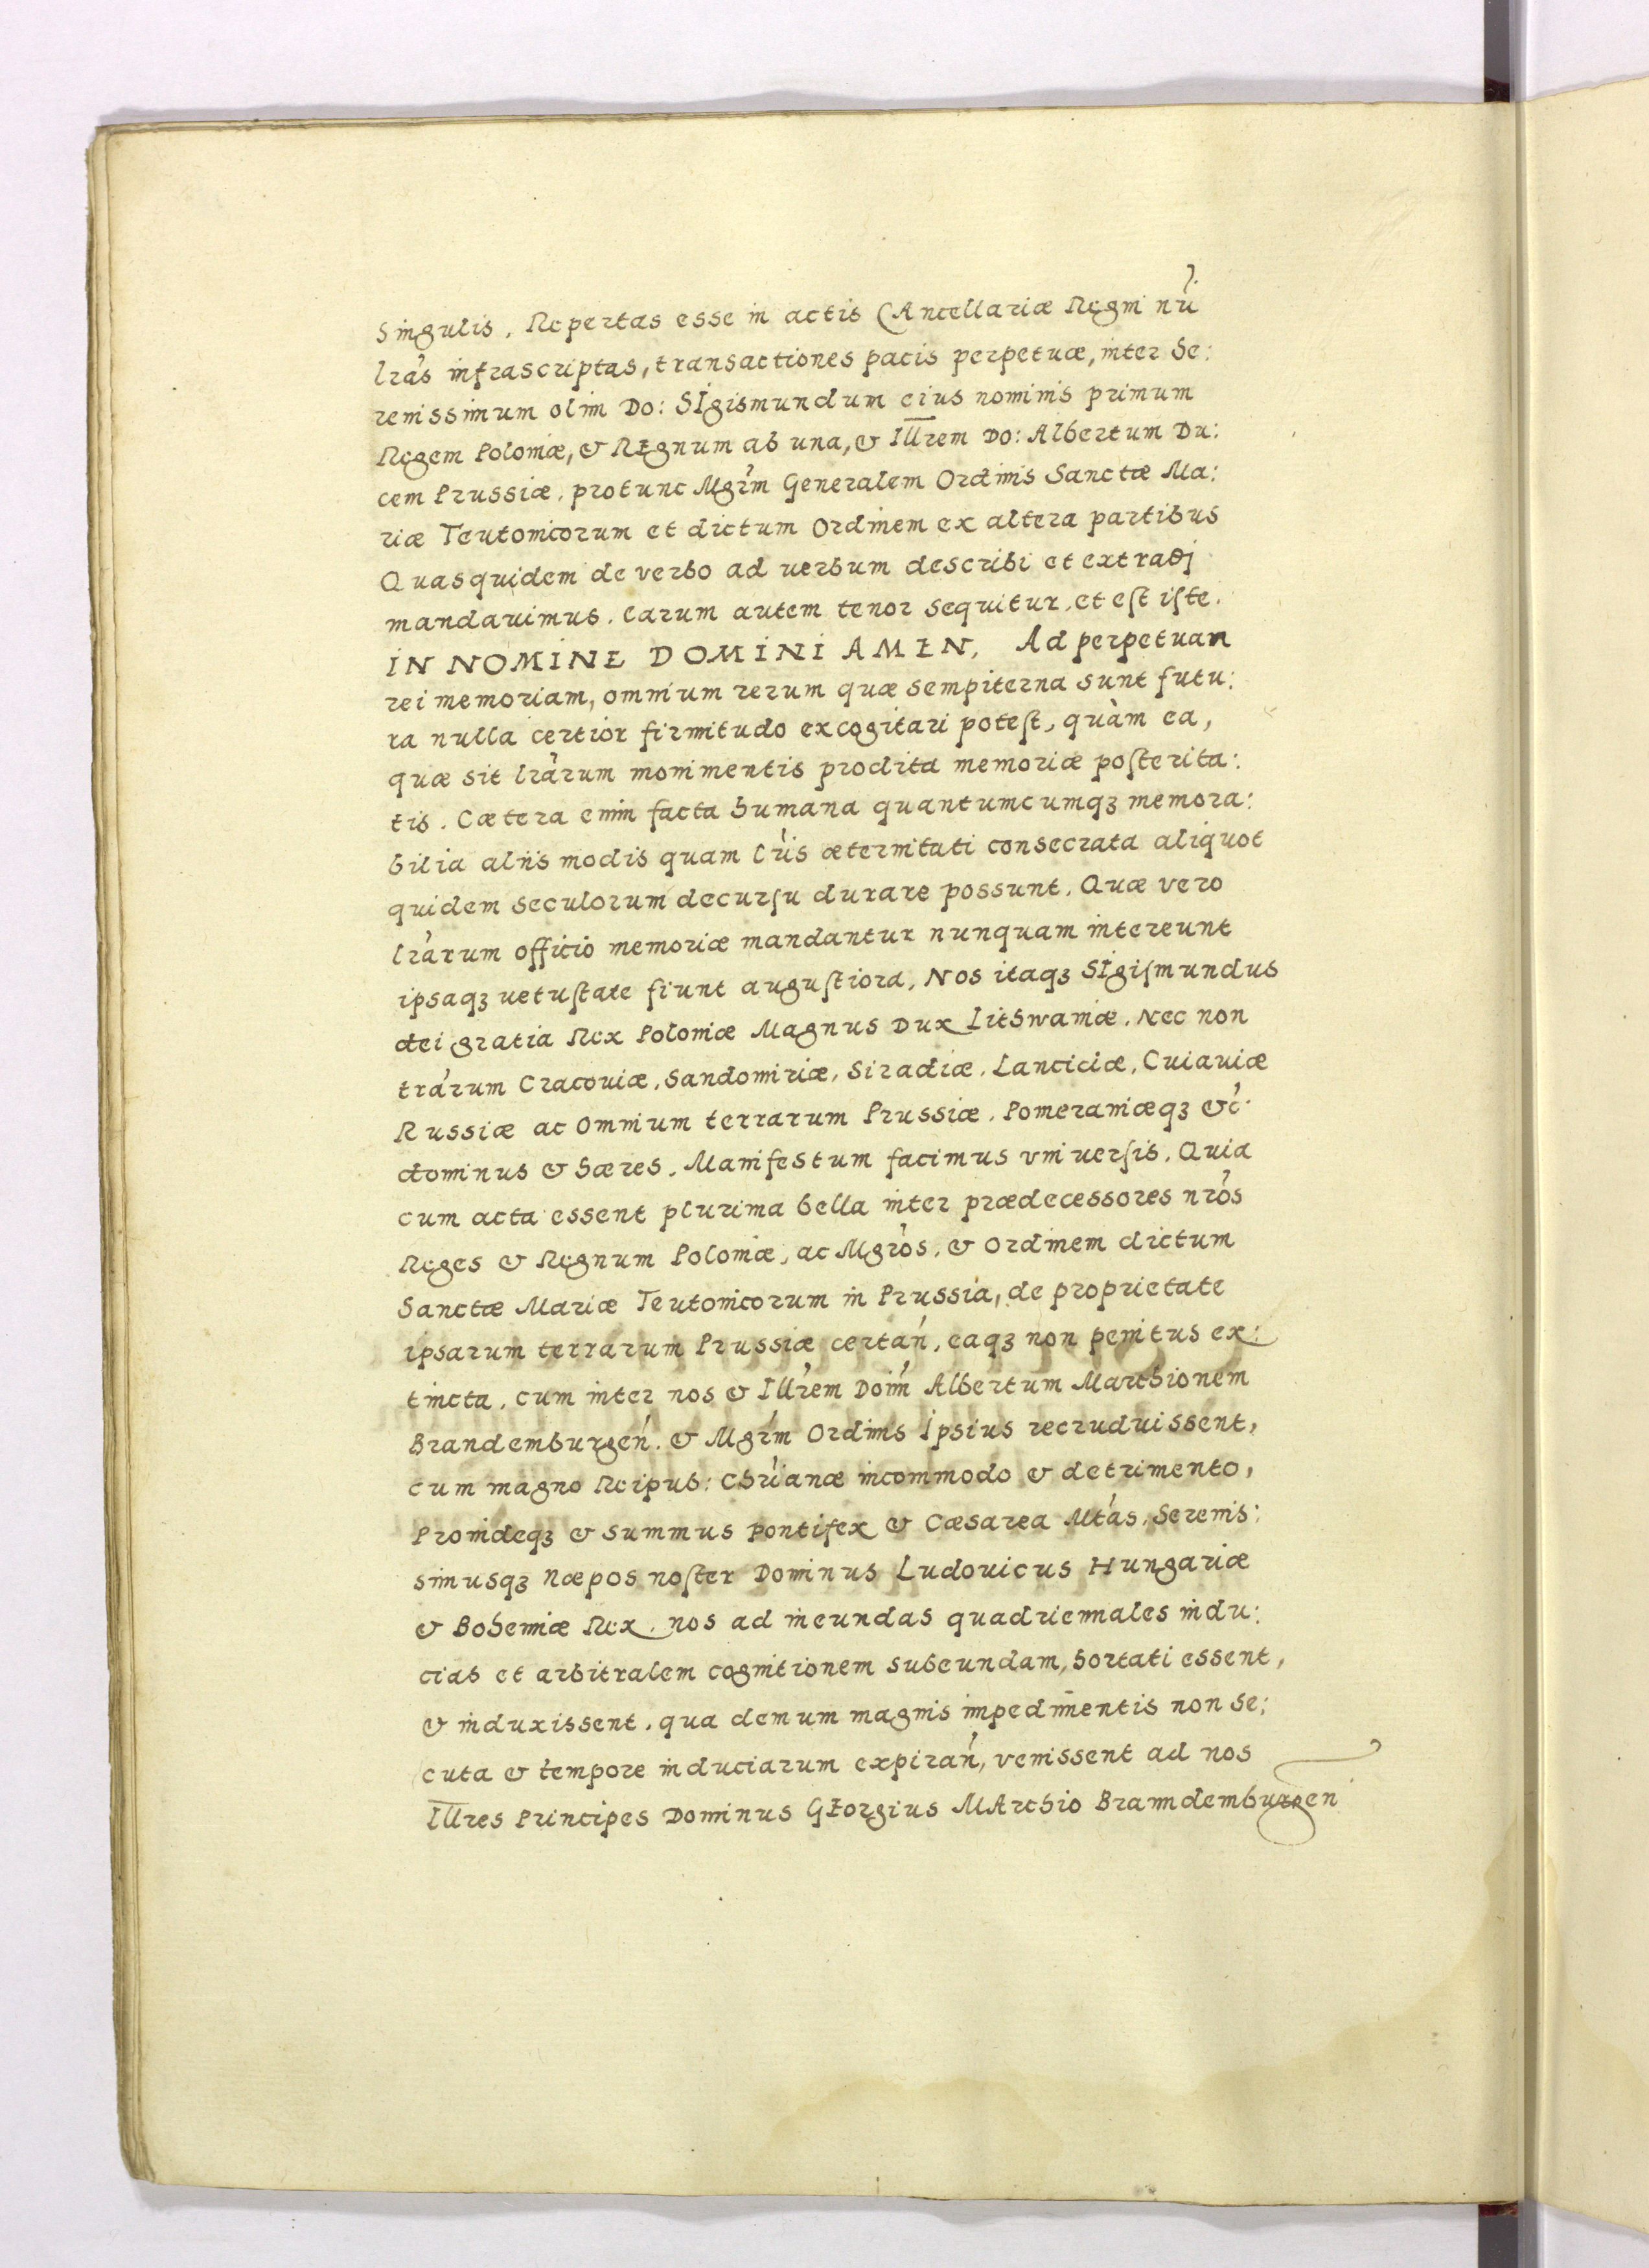 Singulis, Repertas esse in actis CAncellariæ Regni nri
lras infrascriptas, transactiones pacis perpetuæ, inter Se:
renissimum olim Do: SIgismundum eius nominis primum
Regem Poloniæ, & REgnum ab una, & Illrem Do: Albertum Du:
cem Prussiæ, protunc Mgrm Generalem Ordinis Sanctæ Ma:
riæ Teutonicorum et dictum Ordinem ex altera partibus
Quasquidem de verbo ad uerbum describi et extradj
mandauimus. Earum autem tenor sequitur, et est iste.
IN NOMINE DOMINI AMEN, Ad perpetuam
rei memoriam, omnium rerum quæ sempiterna sunt futu:
ra nulla certior firmitudo excogitari potest, quàm ea,
quæ sit lrarum monimentis prodita memoriæ posterita:
tis. Cætera enim facta humana quantumcumqꝫ memora:
bilia alijs modis quam lris æternitati consecrata aliquot
quidem seculorum decursu durare possunt. Quæ vero
lrarum officio memoriæ mandantur nunquam intereunt
ipsaqꝫ uetustate fiunt augustiora, Nos itaqꝫ SIgismundus
dei gratia Rex Poloniæ Magnus Dux Lithwaniæ. Nec non
trarum Cracouiæ, Sandomiriæ, Siradiæ, Lanciciæ, Cuiauiæ
Russiæ ac Omnium terrarum Prussiæ, Pomeraniæqꝫ &c.
dominus & hæres. Manifestum facimus vniuersis, Quia
cum acta essent plurima bella inter prædecessores nros
Reges & Regnum Poloniæ, ac Mgros, & Ordinem dictum
Sanctæ Mariæ Teutonicorum in Prussia, de proprietate
ipsarum terrarum Prussiæ certan, eaqꝫ non penitus ex:
tincta, cum inter nos & Illrem Doim Albertum Marchionem
Brandemburgen. & Mgrm Ordinis Ipsius recruduissent,
cum magno Reipub: Chrianæ incommodo & detrimento,
Proindeqꝫ & Summus pontifex & Cæsarea Mtas, Serenis:
simusqꝫ Næpos noster Dominus Ludouicus Hungariæ
& Bohemiæ Rex, nos ad ineundas quadriennales indu:
cias et arbitralem cognitionem subeundam, hortati essent,
& induxissent, qua demum magnis impedimentis non se:
cuta & tempore induciarum expiran, venissent ad nos
Illres Principes Dominus GEorgius MArchio Branndemburgen